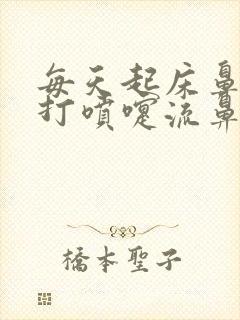 每天起床鼻
打噴嚏流鼻
橋本聖子